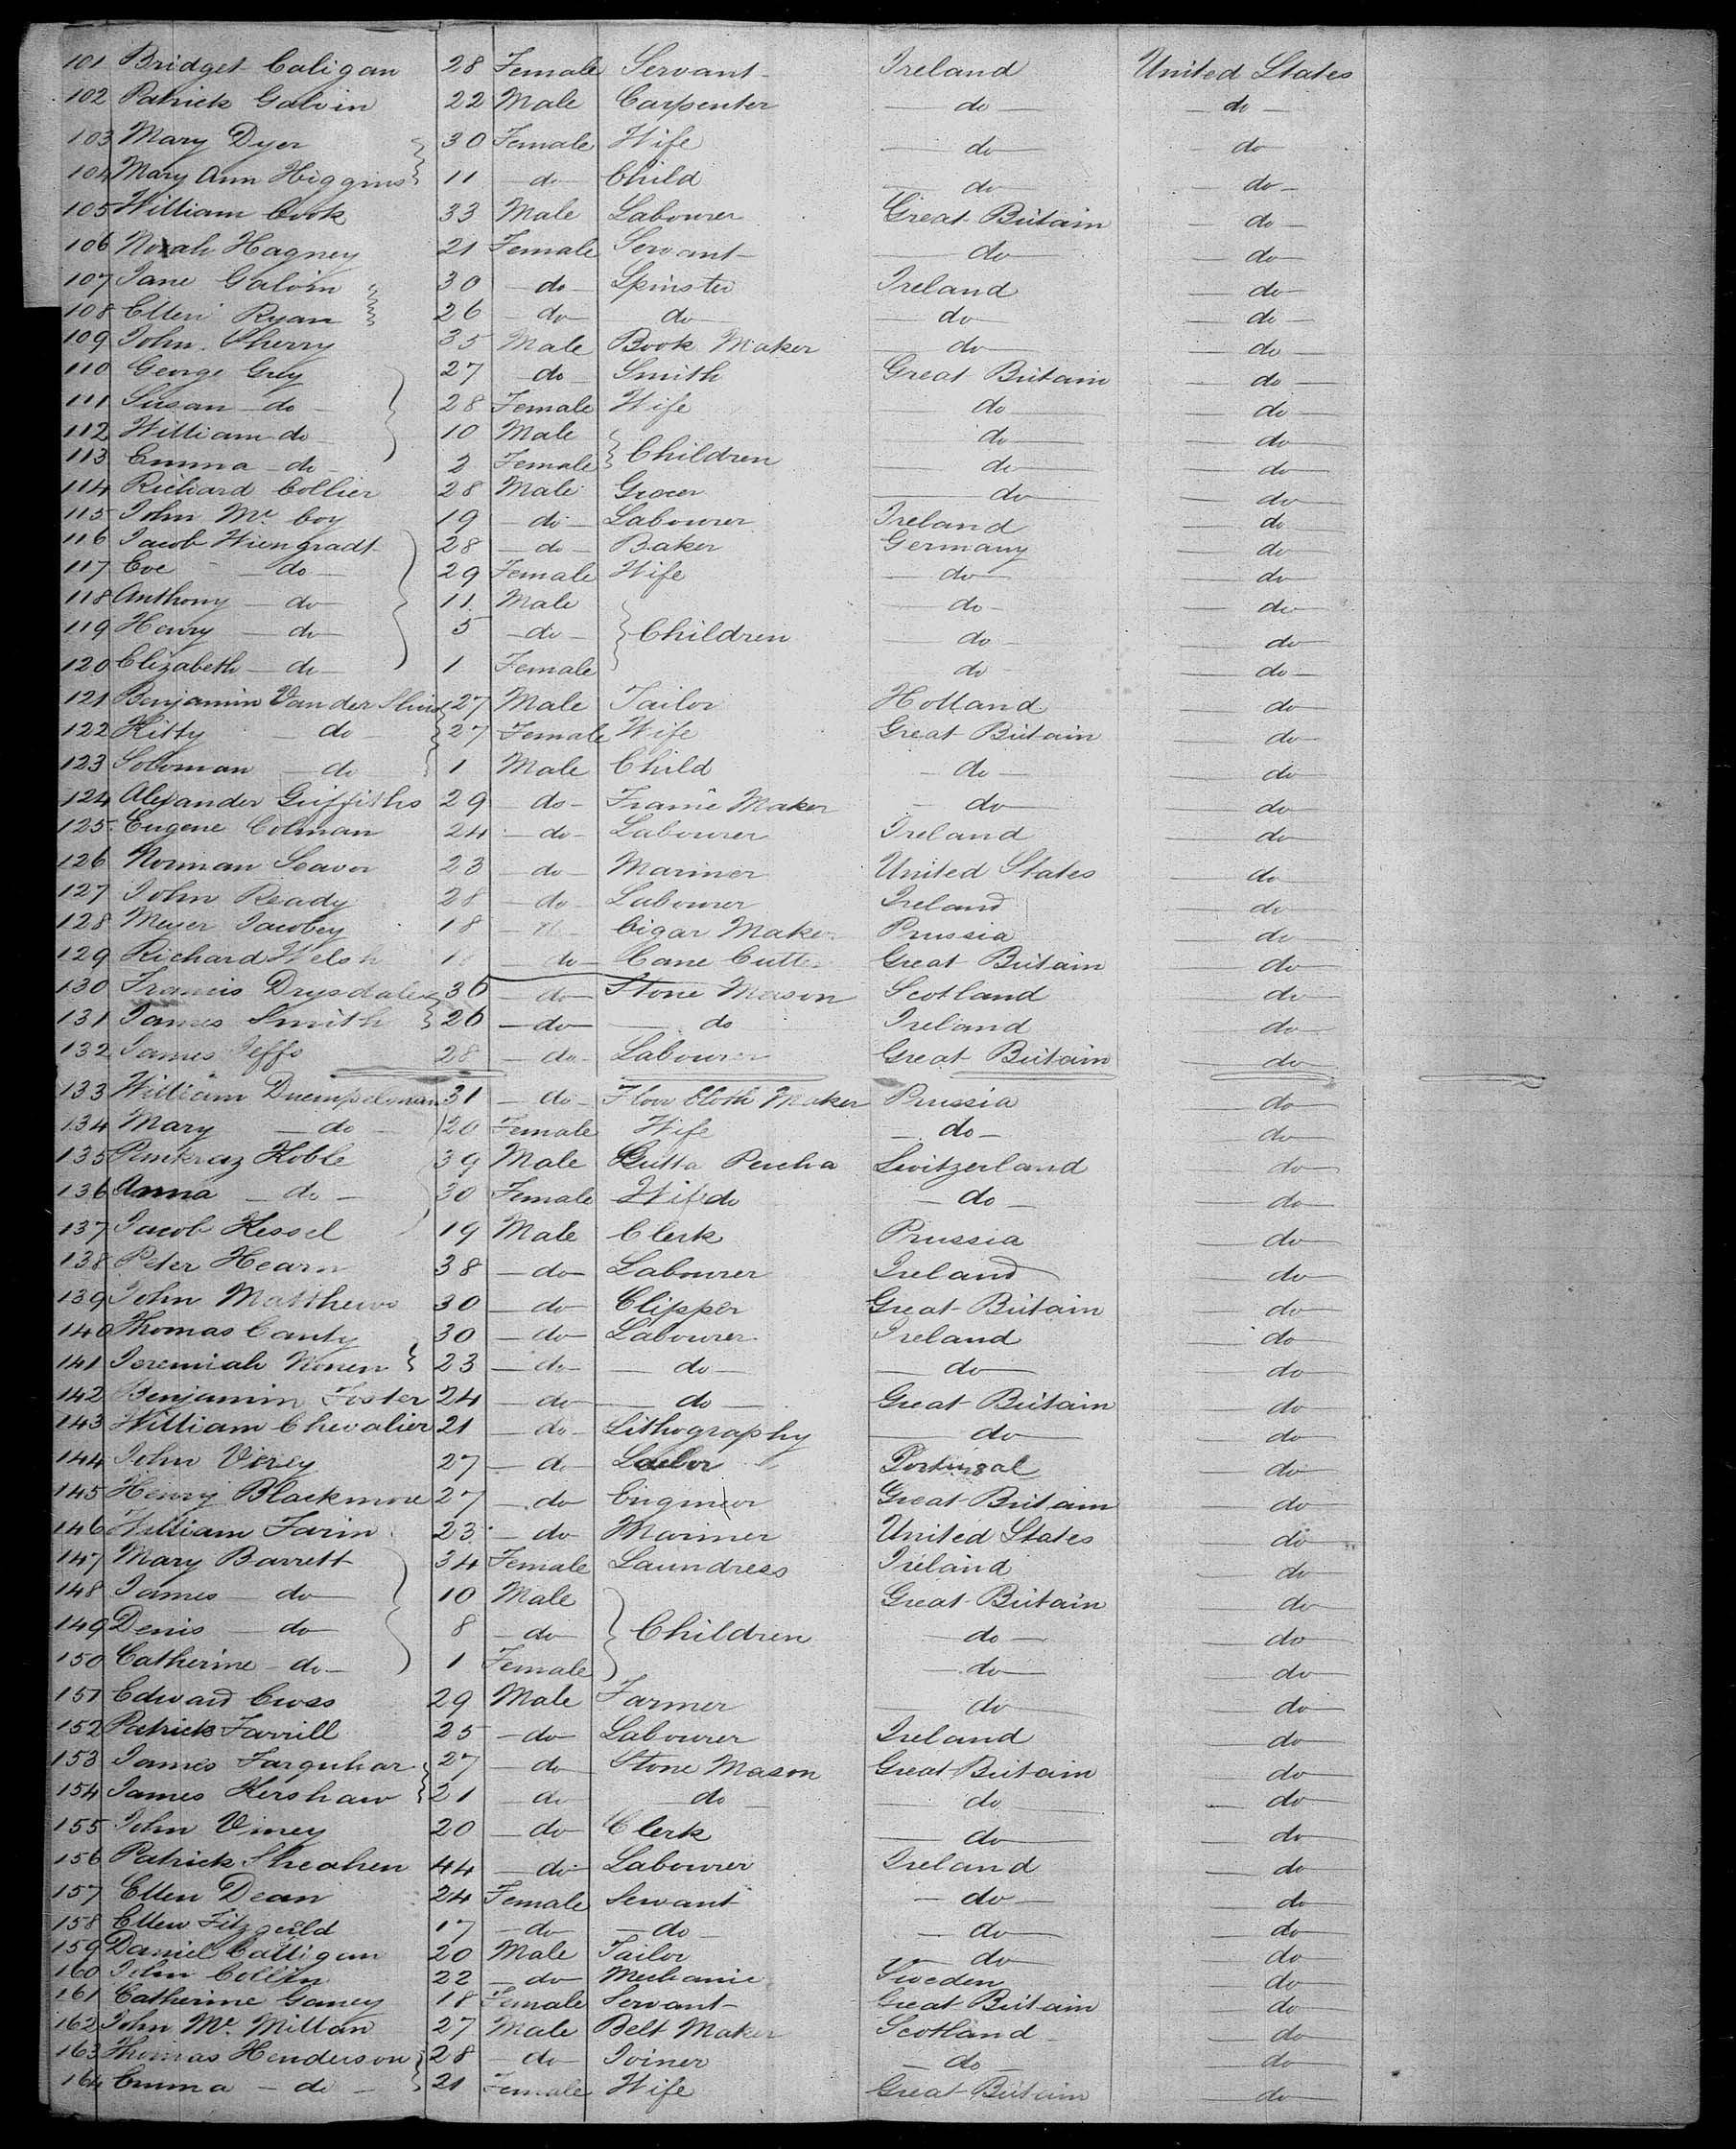 101 Bridget Caligan 28 Female Servant Ireland United States
102 Patrick Galvin 22 Male Carpenter do do
103 Mary Dyer 30 Female Wife do do
104 Mary Ann Higgins 11 do Child do do
105 William Cook 33 Male Labourer Great Britain do
106 Norah Hagney 21 Female Servant do do
107 Jane Galvin 30 do Spinster Ireland do
108 Ellen Ryan 26 do do do do
109 John Sherry 35 Male Book Maker do do
110 George Grey 27 do Smith Great Britain do
111 Susan do 28 Female Wife do do
112 William do 10 Male do do
113 Emma do 2 Female Children do do
114 Richard Collier 28 Male Grocer do do
115 John Mc. Coy 19 do Labourer Ireland do
116 Jacob Wiengradt 28 do Baker Germany do
117 Eve do 29 Female Wife do do
118 Anthony do 11 Male do do
119 Henry do 5 do Children do do
120 Elizabeth do 1 Female do do
121 Benjamin Van der 27 Male Tailor Holland do
122 Kitty do 27 Female Wife Great Britain do
123 Soloman do 1 Male Child do do
124 Alexander Griffiths 29 do Frame Maker do do
125 Eugene Colman 24 do Labourer Ireland do
126 Norman Seavor 23 do Mariner United States do
127 John Ready 28 do Labourer Ireland do
128 Meyer Jacobey 18 Cigar Maker Prussia do
129 Richard Welsh do Cane Cutter Great Britain do
130 Francis Drysdale 36 do Stone Mason Scotland do
131 James Smith 26 do do Ireland do
132 James Jeffs 28 do Labourer Great Britain do
133 William 31 do Floor Cloth Maker Prussia do
134 Mary do 20 Female Wife do do
135 Pankraz Koble 39 Male Gutta Percha Switzerland do
136 Anna do 30 Female Wife do do do
137 Jacob Kessel 19 Male Clerk Prussia do
138 Peter Hearn 38 do Labourer Ireland do
139 John Matthews 30 do Clipper Great Britain do
140 Thomas Canty 30 do Labourer Ireland do
141 Jeremiah Wonen 23 do do do do
142 Benjamin Foster 24 do do Great Britain do
143 William Chevalier 21 do Lithography do do
144 John Virey 27 do Portugal do
145 Henry Blackmore 27 do Engineer Great Britain do
146 William Farin 23 do Mariner United States do
147 Mary Barrett 34 Female Laundress Ireland do
148 James do 10 Male Great Britain do
149 Denis do 8 do Children do do
150 Catherine do 1 Female do do
151 Edward Cross 29 Male Farmer do do
152 Patrick Farrill 25 do Labourer Ireland do
153 James Farquhar 27 do Stone Mason Great Britain do
154 James Kershaw 21 do do do do
155 John Viney 20 do Clerk do do
156 Patrick Sheahen 44 do Labourer Ireland do
157 Ellen Dean 24 Female Servant do do
158 Ellen Fitzgerld 17 do do do do
159 Daniel Cattigan 20 Male Tailor do do
160 John Collin 22 do Mechanic Sweden do
161 Catherine Ganey 18 Female Servant Great Britain do
162 John Mc. Millan 27 Male Belt Maker Scotland do
163 Thomas Henderson 28 do Joiner do do
164 Emma do 21 Female Wife Great Britain do